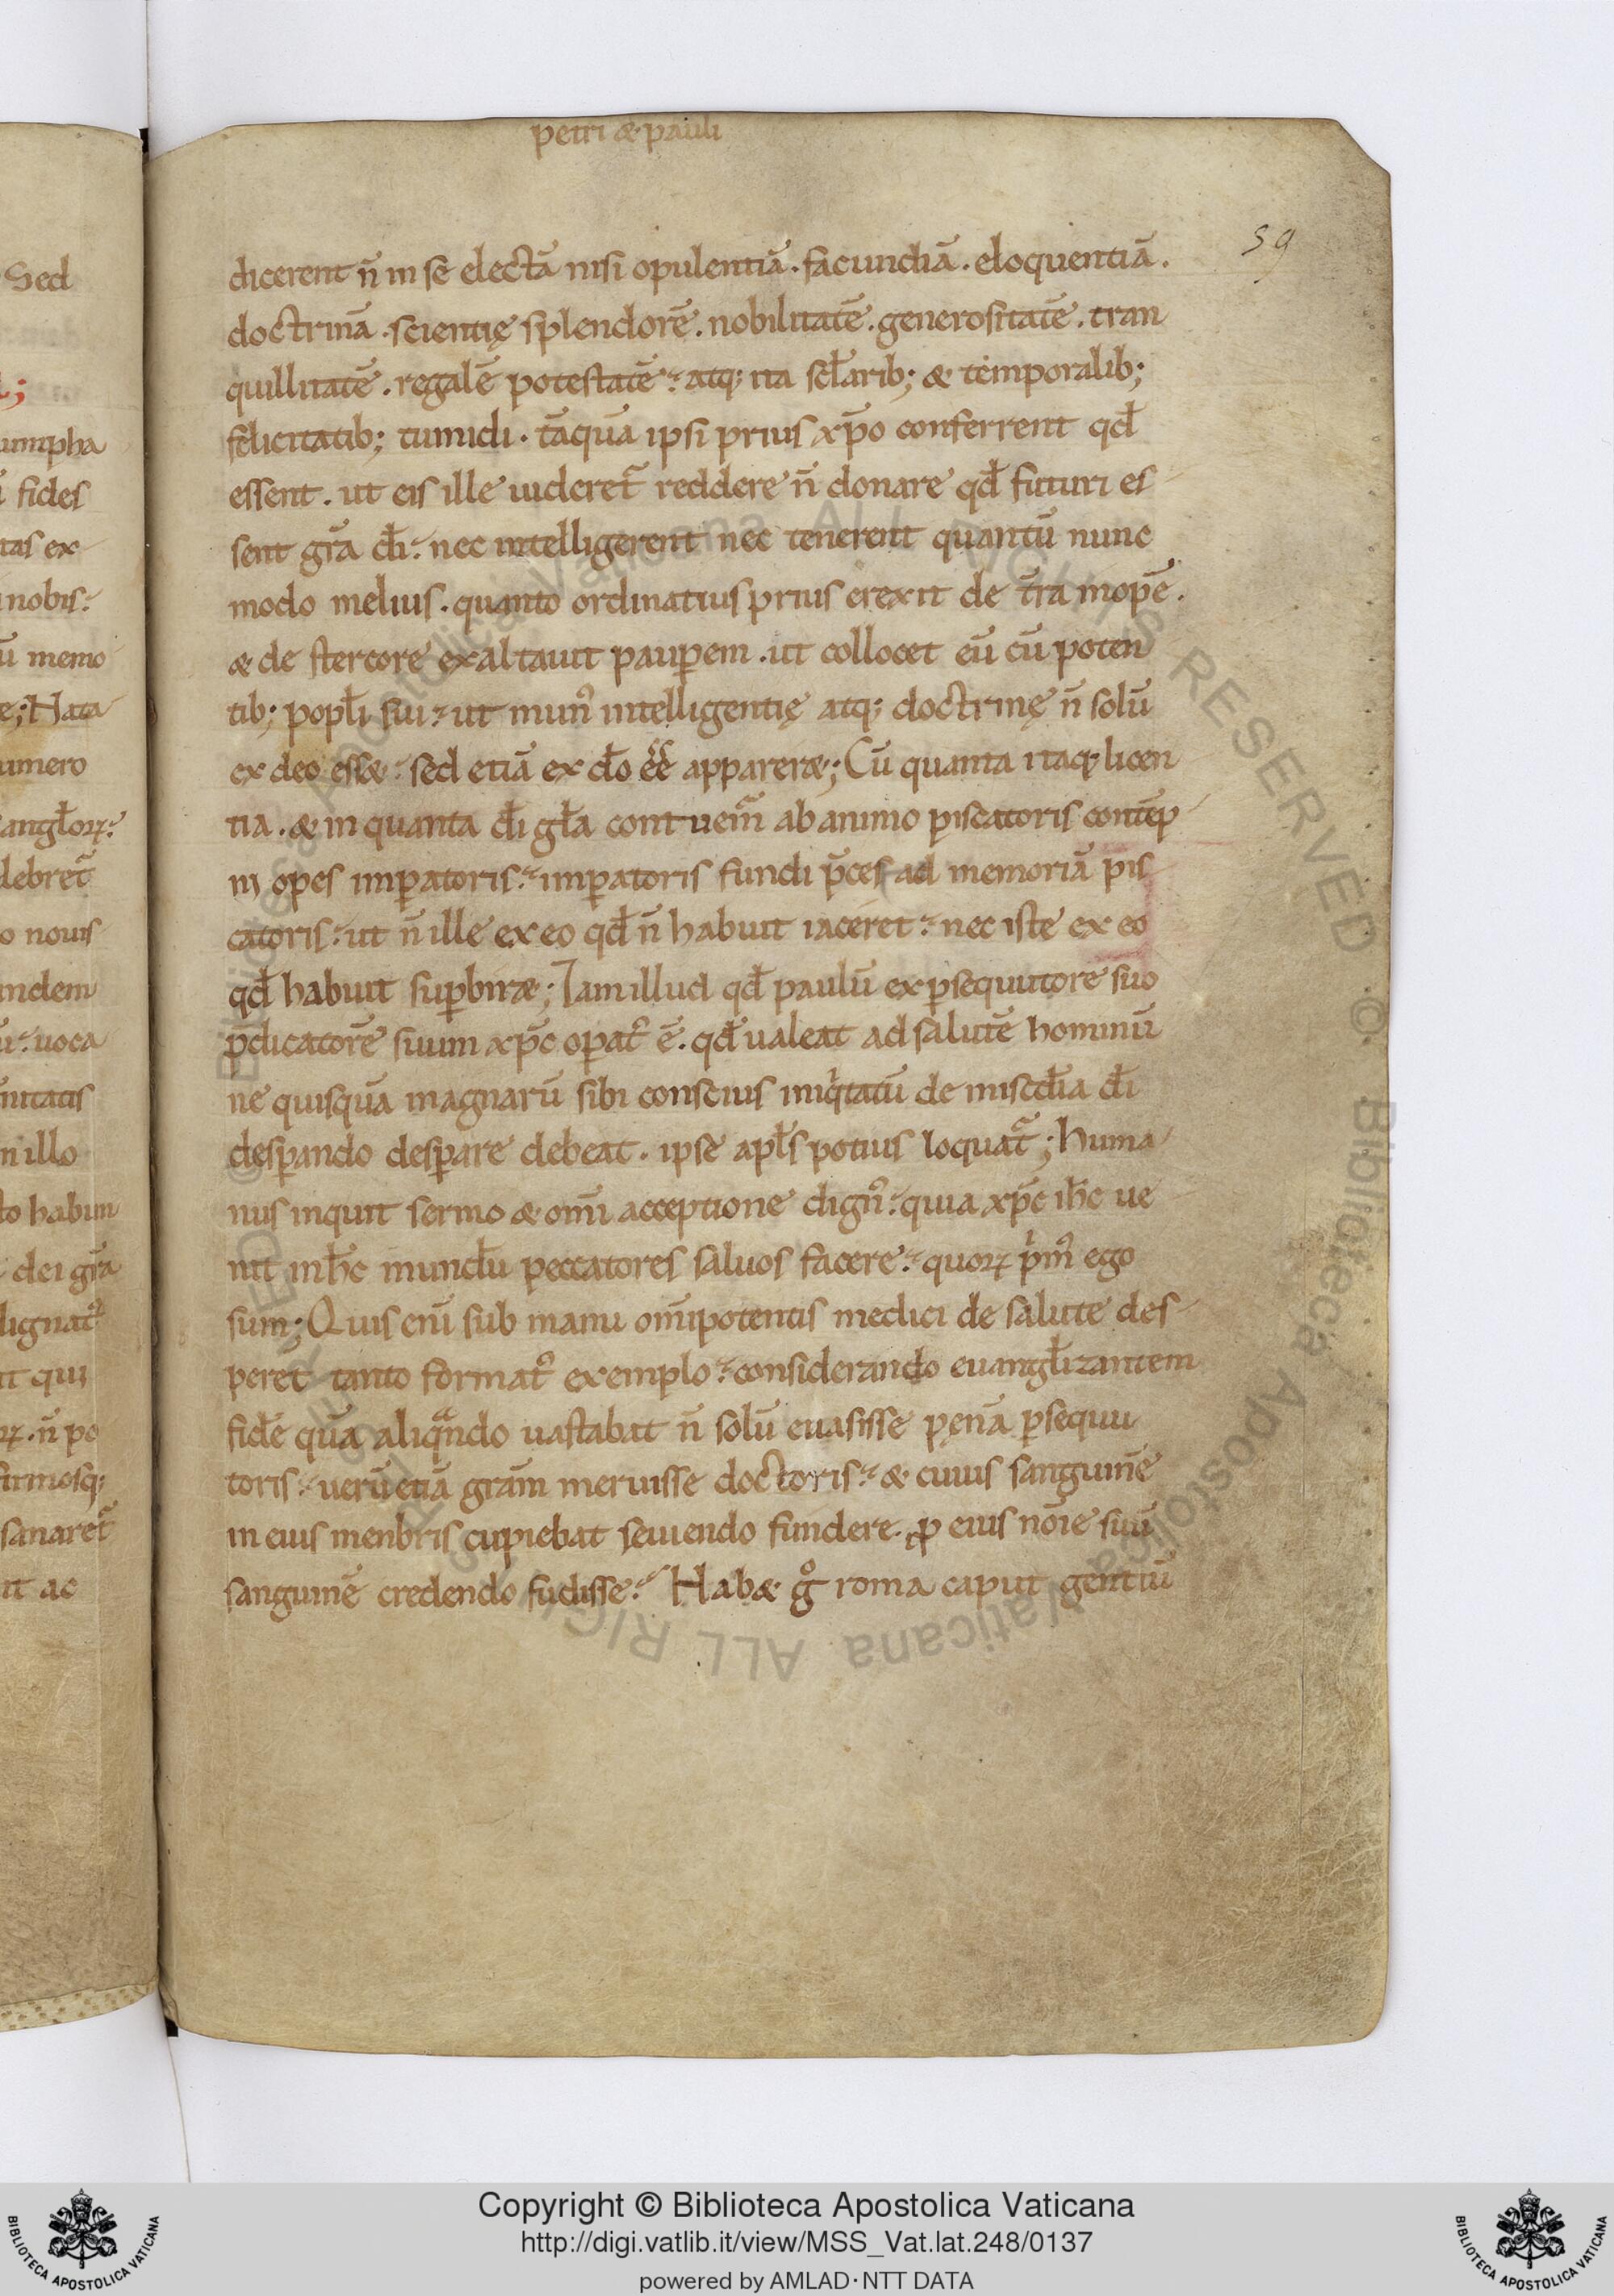 petri & pauli
59
dicerent n̄ in se electā nisi opulentiā . facundiā . eloquentiā .
doctrinā . scientię splendorē . nobilitatē . generositatē . tran
quillitatē . regalē potestatē . atq; ita scl̄arib; & temporalib;
felicitatib; tumidi . tāquā ipsi prius xp̄o conferrent qd̄
essent . ut eis ille uideret᷑ reddere n̄ donare qd̄ futuri es
sent gr̄a dī . nec intelligerent nec tenerent quantū nunc
modo melius . quanto ordinatius prius erexit de t̄ra inopē .
& de stercore exaltauit paup̄em . ut collocet eū cū poten
tib; popl̄i sui . ut mun᷒ intelligentię atq; doctrinę n̄ solū
ex deo esse . sed etiā ex dō ēē apparer&; Cū quanta itaq; licen
tia . & in quanta dī gl̄a contuem᷑ ab animo piscatoris contēp
ni opes imp̄atoris . imp̄atoris fundi p̄ces ad memoriā pis
catoris . ut n̄ ille ex eo qd̄ n̄ habuit iaceret . nec iste ex eo
qd̄ habuit sup̄bir&; Iam illud qd̄ paulū ex p̄sequutore suo
p̄dicatorē suum xp̄c opat᷒ ē . qd̄ ualeat ad salutē hominū
ne quisquā magnarū sibi conscius iniqͥtatū de miscd̄ia dī
desp̄ando desp̄are debeat . ipse apl̄s potius loquat᷑; huma
nus inquit sermo & om̄i acceptione dign᷒ . quia xp̄c ih̄c ue
nit in h̄c mundū peccatores saluos facere . quoꝝ pͥm᷒ ego
sum; Quis eni̅ sub manu om̄ipotentis medici de salute des
peret tanto format᷒ exemplo . considerando euangl̄izantem
fidē quā aliqᷓndo uastabat n̄ solū euasisse pęnā p̄sequu
toris . uerūetiā gr̄am meruisse doctoris . & cuius sanguinē
in eius menbris cupiebat seuiendo fundere . ꝓ eius nōie suū
sanguinē credendo fudisse . Hab& gͦ roma caput gentiū
Sed
umpha
fides
tas ex
nobis
ū memo
e; Nata
umero
angl̄oꝝ
debret᷑
o nouis
ndem
ū . uoca
nitatis
n illo
to habun
dei gr̄a
dignat᷒
it qui
ꝝ . n̄ po
firmosq;
sanaret᷑
it ac
Biblioteca Apostolica Vaticana ALL RIGHTS RESERVED ©
BIBLIOTECA APOSTOLICA VATICANA
Copyright © Biblioteca Apostolica Vaticana
http://digi.vatlib.it/view/MSS_Vat.lat.248/0137
powered by AMLAD·NTT DATA
BIBLIOTECA APOSTOLICA VATICANA